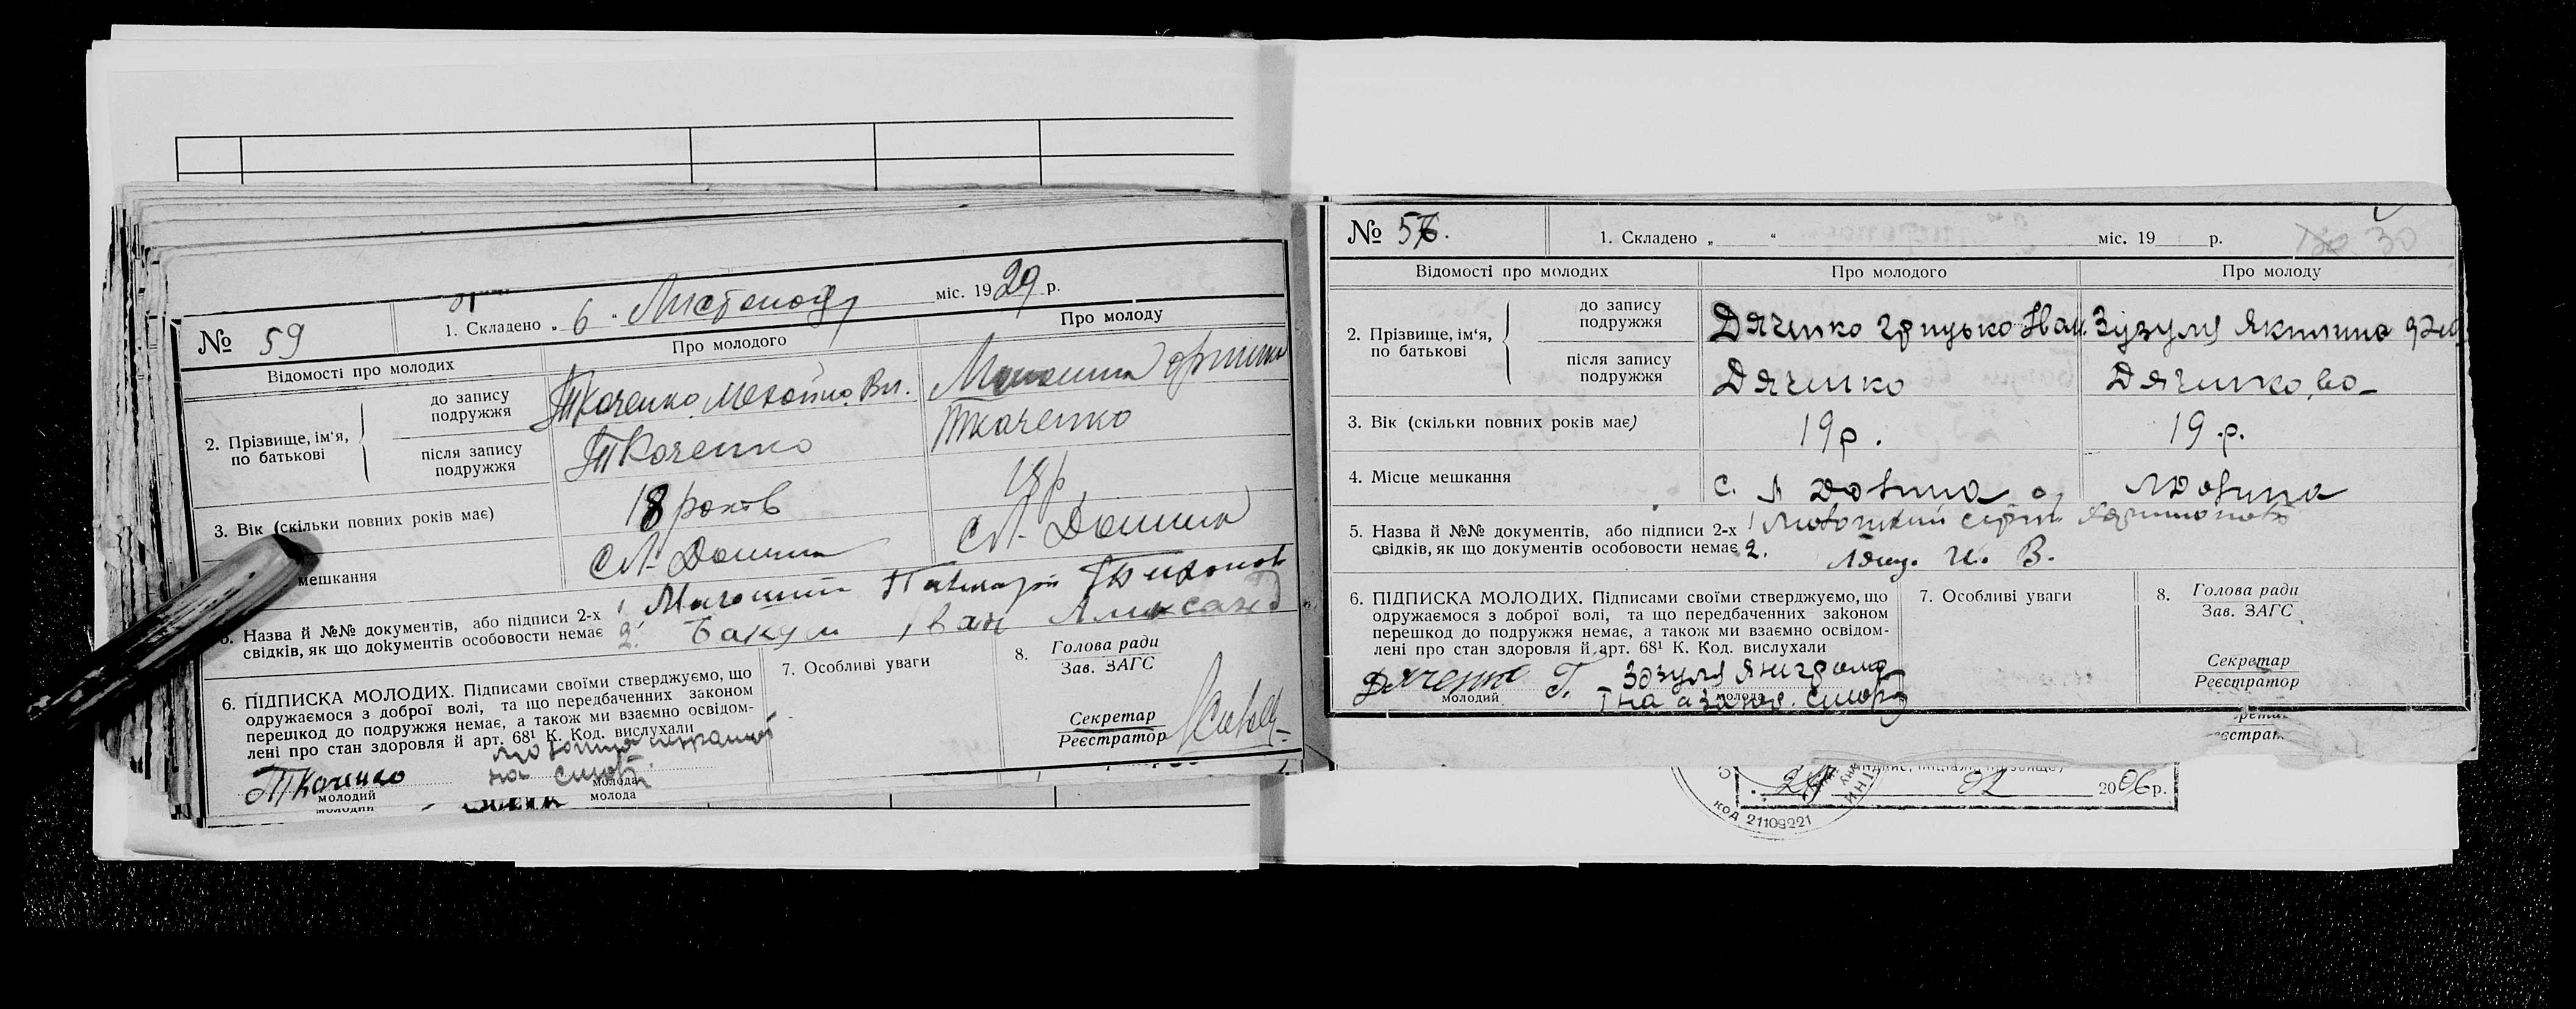 № 59
1. Складено „ 6 “ Листопад міс. 1929 р.
Відомості про молодих
Про молодого
Про молоду
2. Прізвище, ім'я, по батькові
до запису подружжя
Ткаченко Вл.
після запису подружжя
Ткаченко
Ткаченко
3. Вік (скільки повних років має)
18 років
18 р
мешкання
с Л-Долина
с Л. Долина
Назва й №№ документів, або підписи 2-х
свідків, як що документів особовости немає
1
2. Бакум Іван Александ
6. ПІДПИСКА МОЛОДИХ. Підписами своїми стверджуємо, що
одружаємося з доброї волі, та що передбаченних законом
перешкод до подружжя немає, а також ми взаємно освідом-
лені про стан здоровля й арт. 68¹ К. Код. вислухали
Ткаченко
молодий
молода
молодий
молода
7. Особливі уваги
8. Голова ради
Зав. ЗАГС
Секретар
Реєстратор
№ 56.
1. Складено „ “ міс. 19 р.
30
Відомості про молодих
Про молодого
Про молоду
2. Прізвище, ім'я, по батькові
до запису подружжя
Дяченко Грицько Иван.
Зузуля
після запису подружжя
Дяченко
Дяченко, во-
3. Вік (скільки повних років має)
19 р.
19 р.
4. Місце мешкання
с. Л Долина
Л Долина
5. Назва й №№ документів, або підписи 2-х
свідків, як що документів особовости немає
1
2. И. В.
6. ПІДПИСКА МОЛОДИХ. Підписами своїми стверджуємо, що
одружаємося з доброї волі, та що передбаченних законом
перешкод до подружжя немає, а також ми взаємно освідом-
лені про стан здоровля й арт. 68¹ К. Код. вислухали
Дяченко Г.
молодий
молода
7. Особливі уваги
8. Голова ради
Зав. ЗАГС
Секретар
Реєстратор
02 2006 р.
КОД 21109221